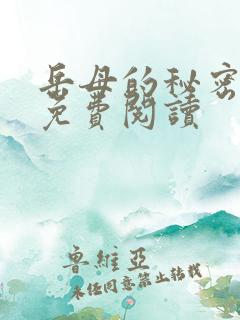 岳母的秘密
免費閱讀
鲁維亞
未任同意禁止转載